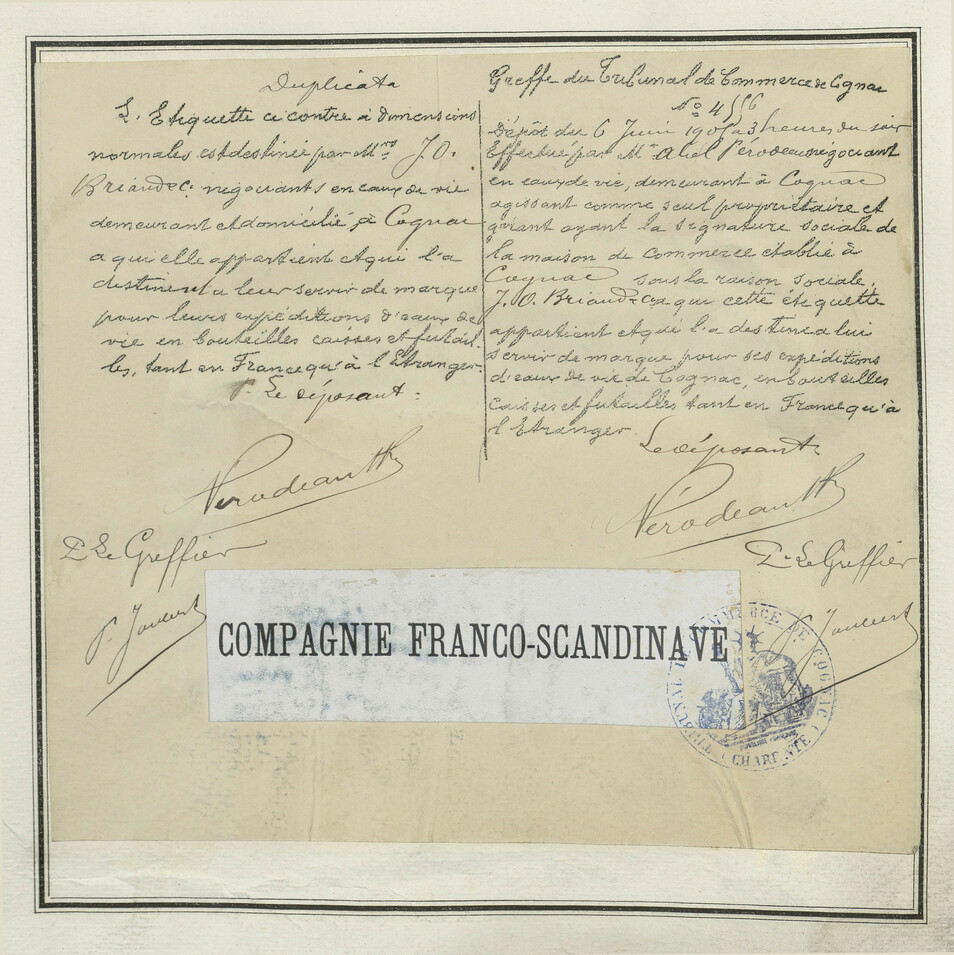 Duplicata
L'Etiquette ci contre à dimensions
normales est destinée par Mrs J.O.
Briand & Co negociants en eaux de vie
demeurant et domicilié à Cognac
a qui elle appartient et qui l'a
destinent a leur servir de marque
pour leurs expéditions d'eaux de
vie en bouteilles caisses et futail-
les, tant en France qu'à l'Etranger.
P. Le déposant:
Pérodeau
Pr Le Greffier
Greffe du Tribunal de Commerce de Cognac
No 4556
Dépôt du 6 Juin à 3 heures du soir
Effectué par Mr Abel Pérodeau négociant
en eaux de vie, demeurant à Cognac
agissant comme seul propriétaire et
gérant ayant la signature sociale de
la maison de commerce établie à
Cognac sous la raison sociale.
J.O. Briand & Co a qui cette étiquette
appartient et qui l'a destine a lui
servir de marque pour ses expéditions
d'eaux de vie de Cognac, en bouteilles
caisses et futailles tant en France qu'à
l'Etranger.
Le déposant
Pérodeau
Pr Le Greffier
COMPAGNIE FRANCO-SCANDINAVE
TRIBUNAL DE COMMERCE DE COGNAC
(CHARENTE)